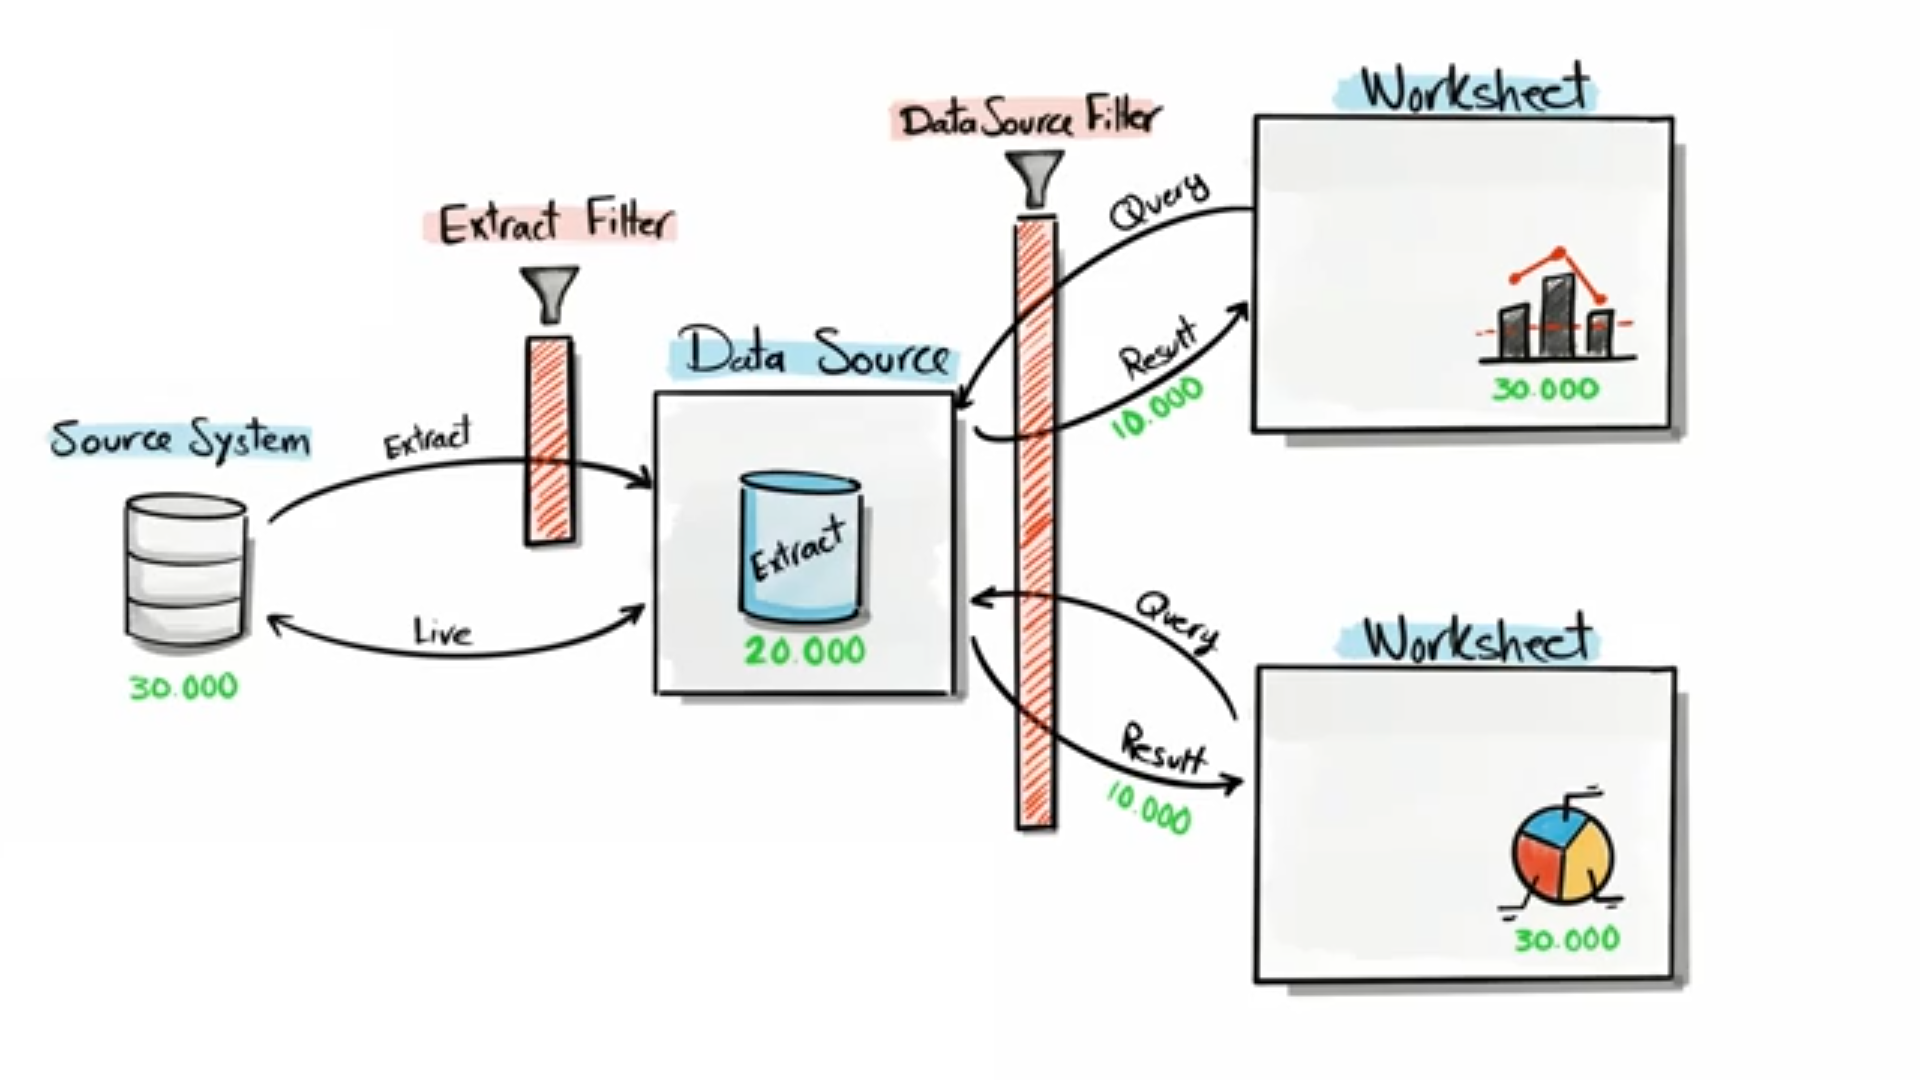 Source System
Extract
Live
30.000
Extract Filter
Data Source
Extract
20.000
Data Source Filter
Query
Result
10.000
Query
Result
10.000
Worksheet
30.000
Worksheet
30.000